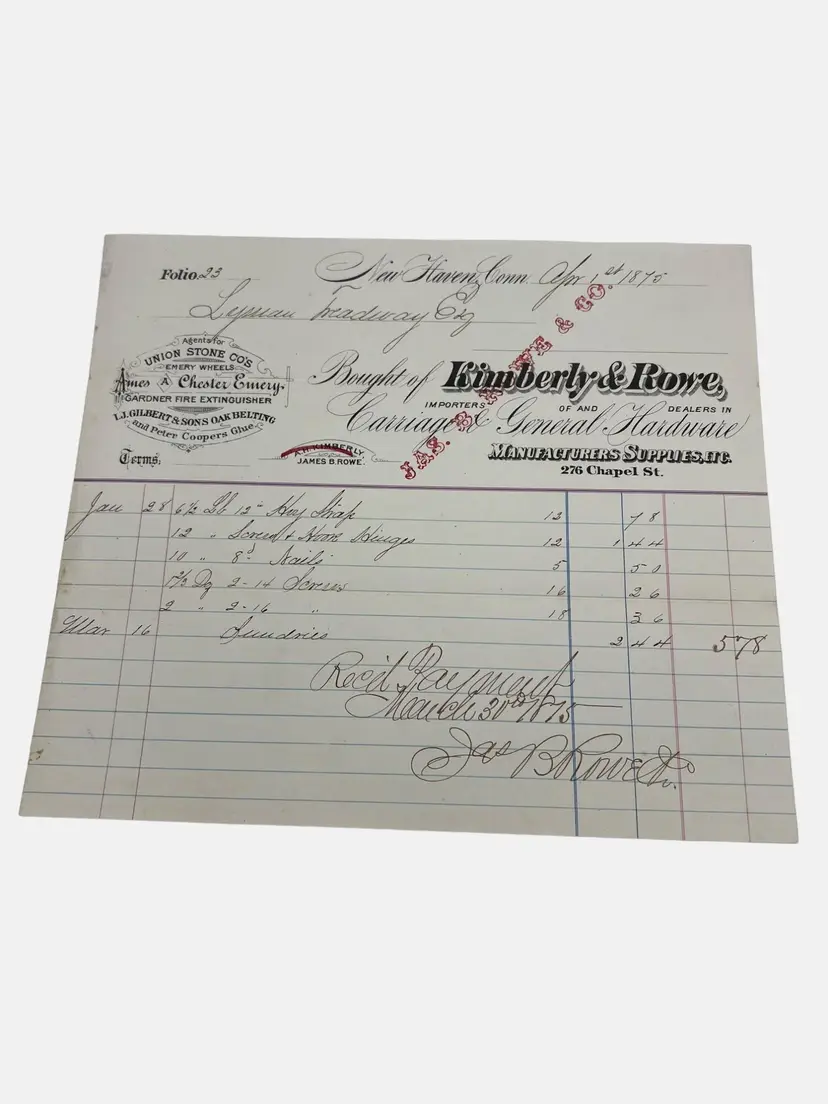 Folio 23 New Haven, Conn. Apr 1st 1875
Lyman Treadway Esq
Agents for
UNION STONE CO'S
EMERY WHEELS
Ames A Chester Emery,
GARDNER FIRE EXTINGUISHER
L.I. GILBERT & SONS OAK BELTING
and Peter Coopers Glue.
Bought of Kimberly & Rowe,
IMPORTERS OF AND DEALERS IN
Carriage & General Hardware
MANUFACTURERS SUPPLIES, ETC.
276 Chapel St.
JAS. B. ROWE & CO.
Terms.
A.H. KIMBERLY.
JAMES B. ROWE.
Jan 28 6 1/2 Lb 12" Hvy Strap 12 78
12 " Screw & Hook Hinges 12 1 44
10 " 8d Nails 5 50
1 2/3 Dz 2-14 Screws 16 26
2 " 2-16 " 18 36
Mar 16 Sundries 2 44 5 78
Rec'd Payment
March 30th 1875
Jas B Rowe & Co.